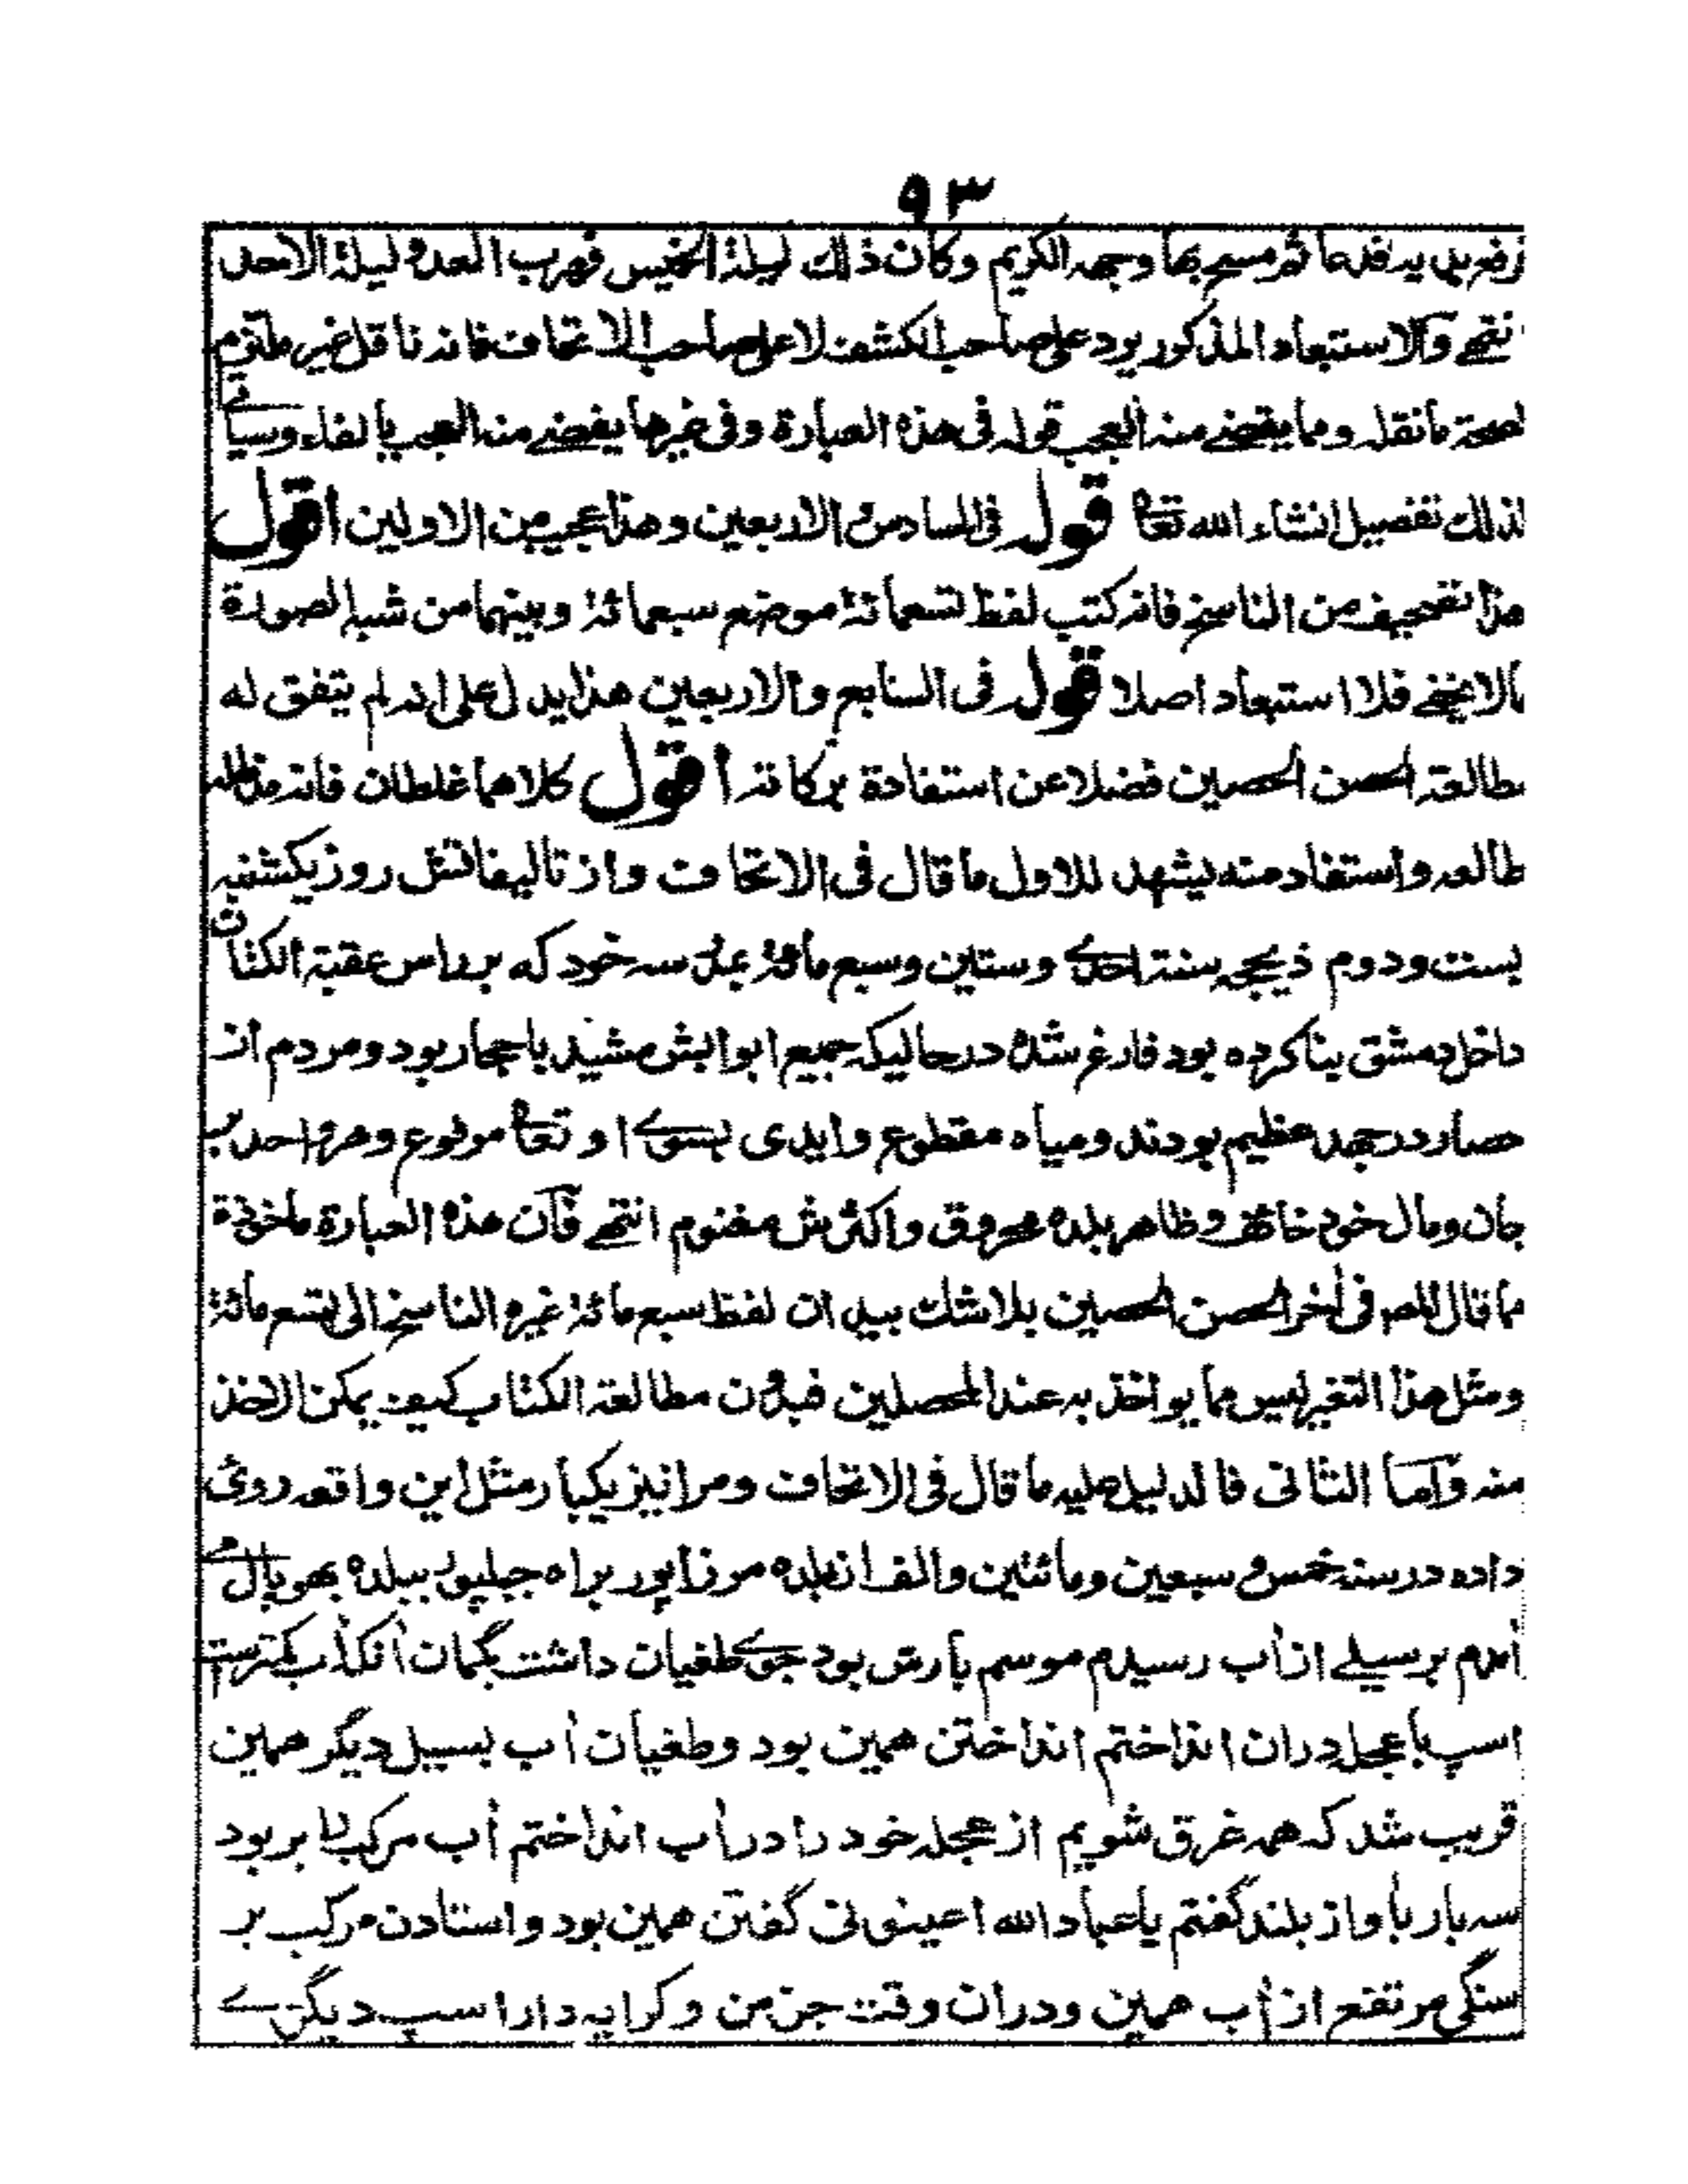 ٩٣
فرفع يديه فدعا ثم مسح بهما وجهه الكريم وكان ذلك ليلة الخميس فهرب العدو ليلة الاحد
انتهى والاستبعاد المذكور يرد على صاحب الكشف لا على صاحب الاتحاف فانه ناقل غير ملتزم
لصحة ما نقله ومما يقضى منه العجب قوله فى هذه العبارة وفى غيرها يفضى منه العجب بالفاء وسياتى
لذلك تفصيل انشاء الله تعا قوله فى السادس الاربعين وهذا عجيب من الاولين اقول
هذا تصحيف من الناسخ فانه كتب لفظ تسعمائة موضع سبعمائة وبينهما من شبه الصورة
مالا يخفى فلا استبعاد اصلا قوله فى السابع والاربعين هذا يدل على انه لم يتفق له
مطالعة الحصن الحصين فضلا عن استفادة بركاته اقول كلاهما غلطان فانه مد ظله
طالعه واستفاد منه يشهد للاول ما قال فى الاتحاف واز تاليفاتش روز يكشنبه
بست ودوم ذيحجه سنة احدى وستين وسبع مائة بمدرسه خود كه برراس عقبة الكتان
داخل دمشق بنا كرده بود فارغ شده درحاليكه جميع ابوابش مشيد باحجار بود ومردم از
حصار درجهد عظيم بودند ومياه مقطوع وايدى بسوى او تعا مرفوع وهر واحد بر
جان ومال خود خائف وظاهر بلده محروق واكثرش مغنوم انتهى فان هذه العبارة ماخوذة
مما قال المص فى اخر الحصن الحصين بلاشك بيد ان لفظ سبع مائة غيره الناسخ الى تسع مائة
ومثل هذا التغير ليس مما يواخذ به عند المحصلين فبدون مطالعة الكتاب كيف يمكن الاخذ
منه واما الثانى فالدليل عليه ما قال فى الاتحاف ومرا نيز يكبار مثل اين واقعه روى
داده در سنه خمس وسبعين ومائتين والف از بلده مرزاپور براه جبلپور ببلده بهوپال مى
آمدم برسيلے از آب رسيدم موسم بارش بود جوى طغيان داشت بگمان آنكه آب كمترست
اسپ با عجله دران انداختم انداختن همين بود وطغيان آب بسيل ديگر همين
قريب شد كه همه غرق شويم از عجله خود را در آب انداختم آب مركب را بربود
سه بار بآواز بلند گفتم يا عباد الله اعينونى گفتن همين بود واستادن مركب بر
سنگى مرتفع از آب همين ودران وقت جز من وكرايه دار اسپ ديگرے